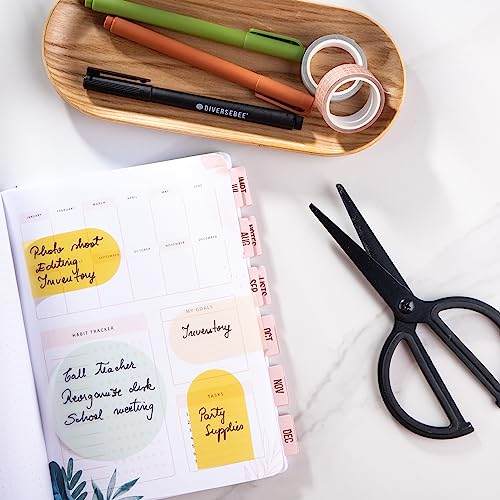 DIVERSEBEE
JANUARY FEBRUARY MARCH APRIL MAY JUNE
Photo shoot
Editing
Inventory
SEPTEMBER OCTOBER NOVEMBER DECEMBER
HABIT TRACKER
Call Teacher
Reorganize desk
School meeting
MY GOALS
Inventory
TASKS
Party
Supplies
AUG
SEP
OCT
NOV
DEC